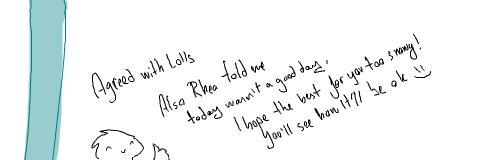 Agreed with Lolls
Also Rhea told me
today wasn't a good day.
I hope the best for you too snowy!
You'll see how it'll be ok :)